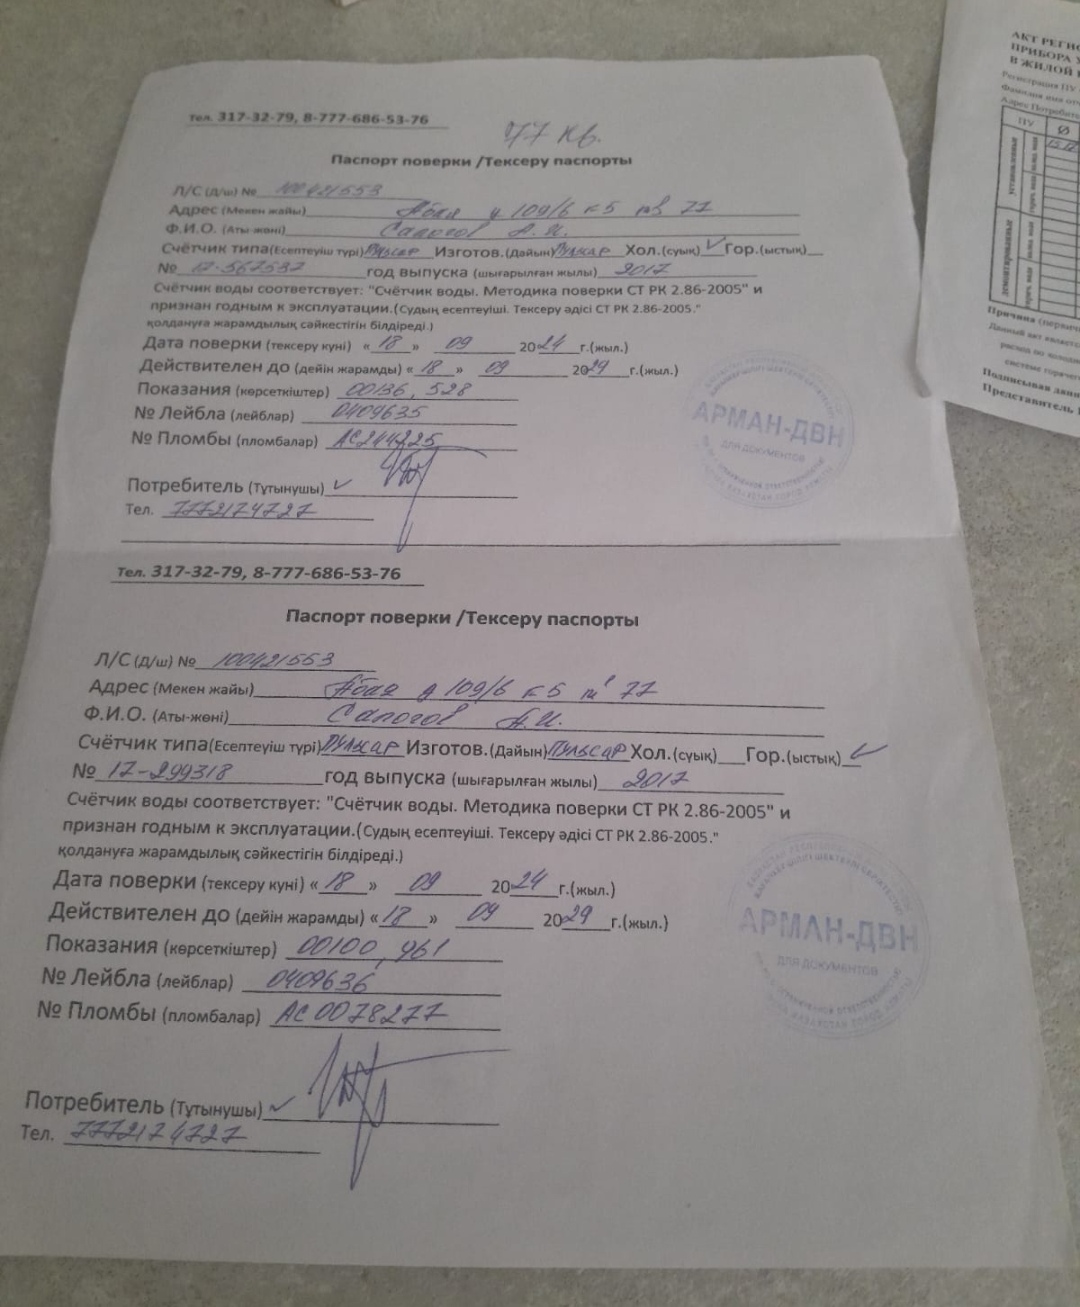 Тел. 317-32-79, 8-777-686-53-76
77 кв.
Паспорт поверки /Тексеру паспорты
Л/С (д/ш) № 100421553
Адрес (Мекен жайы) Абая д 109/6 к 5 77
Ф.И.О. (Аты-жөні) Сапогов А.И.
Счётчик типа(Есептеуіш түрі) Пульсар Изготов.(Дайын) Пульсар Хол.(суық) ✓ Гор.(ыстық)
№ 17-567537 год выпуска (шығарылған жылы) 2017
Счётчик воды соответствует: "Счётчик воды. Методика поверки СТ РК 2.86-2005" и
признан годным к эксплуатации.(Судың есептеуіші. Тексеру әдісі СТ РК 2.86-2005."
қолдануға жарамдылық сәйкестігін білдіреді.)
Дата поверки (тексеру күні) « 18 » 09 2024 г.(жыл.)
Действителен до (дейін жарамды) « 18 » 09 2029 г.(жыл.)
Показания (көрсеткіштер) 00136, 528
№ Лейбла (лейблар) 0409635
№ Пломбы (пломбалар)
АРМАН-ДВН
ДЛЯ ДОКУМЕНТОВ
Потребитель (Тұтынушы) ✓
Тел. 7772174727
Тел. 317-32-79, 8-777-686-53-76
Паспорт поверки /Тексеру паспорты
Л/С (д/ш) № 100421553
Адрес (Мекен жайы) Абая д 109/6 к 5 77
Ф.И.О. (Аты-жөні) Сапогов А.И.
Счётчик типа(Есептеуіш түрі) Пульсар Изготов.(Дайын) Пульсар Хол.(суық) Гор.(ыстық) ✓
№ 17-299318 год выпуска (шығарылған жылы) 2017
Счётчик воды соответствует: "Счётчик воды. Методика поверки СТ РК 2.86-2005" и
признан годным к эксплуатации.(Судың есептеуіші. Тексеру әдісі СТ РК 2.86-2005."
қолдануға жарамдылық сәйкестігін білдіреді.)
Дата поверки (тексеру күні) « 18 » 09 2024 г.(жыл.)
Действителен до (дейін жарамды) « 18 » 09 2029 г.(жыл.)
Показания (көрсеткіштер) 00100, 961
№ Лейбла (лейблар) 0409636
№ Пломбы (пломбалар) АС 0078277
АРМАН-ДВН
ДЛЯ ДОКУМЕНТОВ
Потребитель (Тұтынушы) ✓
Тел. 7772174727
АКТ
ПРИБОРА
В ЖИЛОЙ
Регистрация ПУ
Фамилия имя
Адрес
ПУ Ø
установленные
демонтированные
Причина
Данный акт
Представитель